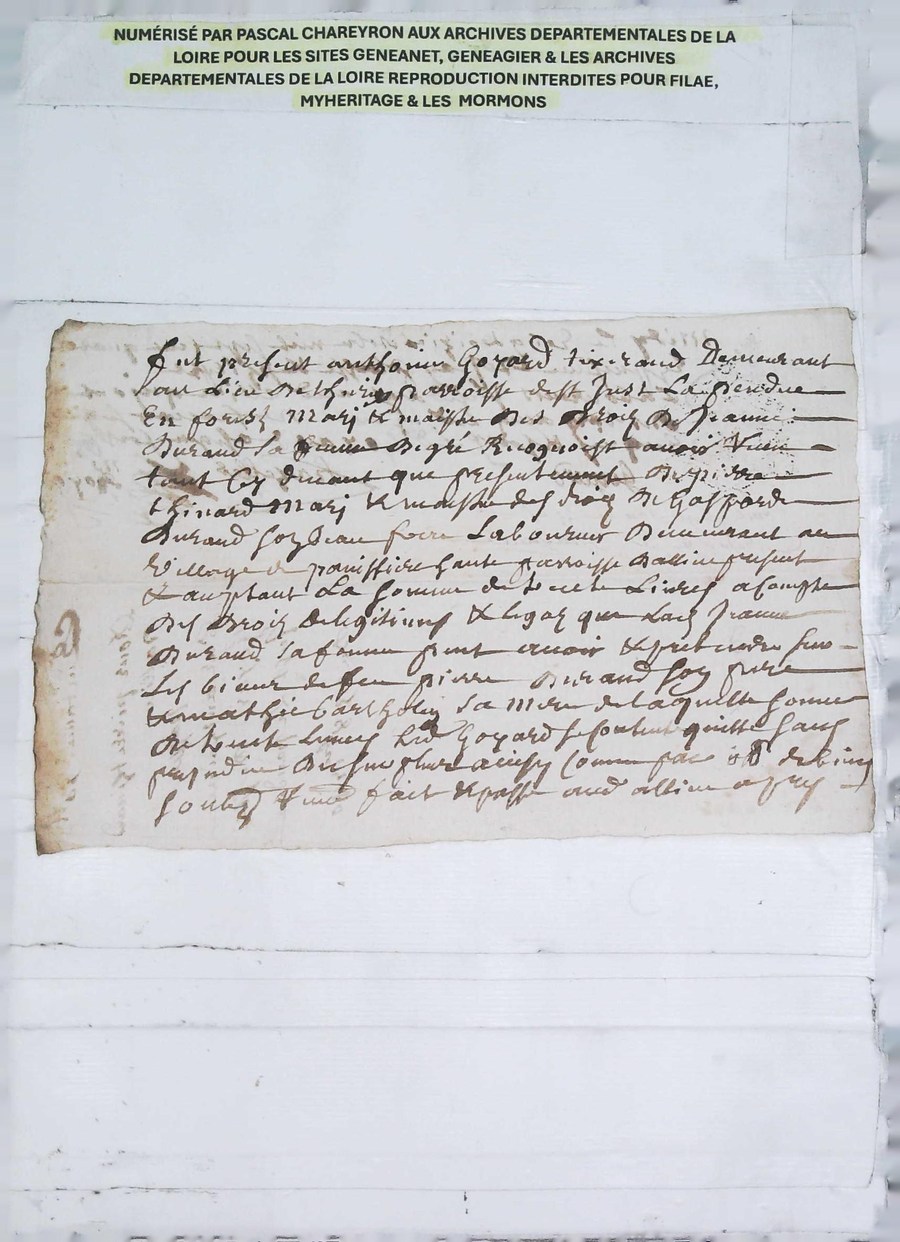 NUMÉRISÉ PAR PASCAL CHAREYRON AUX ARCHIVES DEPARTEMENTALES DE LA
LOIRE POUR LES SITES GENEANET, GENEAGIER & LES ARCHIVES
DEPARTEMENTALES DE LA LOIRE REPRODUCTION INTERDITES POUR FILAE,
MYHERITAGE & LES MORMONS
fut present anthoine Goyard tixerand Demeurant
au Lieu De parroisse de st Just La pendue
En forestz Mary & maistre Des Droictz De Jeanne
Durand sa femme De gré Recognoist avoir
tant Cy devant que presentement De pierre
thinard Mary & maistre des droictz De Gasparde
Durand Laboureur Demeurant au
Village de panissiere haute parroisse present
& acceptant La somme de trente Livres a Compte
Des Droictz De legitime & legat que Lad Jeanne
Durand sa femme peut avoir & pretendre sur
Les biens de feu pierre Durand son pere
& mathie barthelemy sa mere de laquelle somme
De trente Livres Led Goyard se Contente quitte sans
prejudice Du surplus ainsy Comme par de biens
fait & passe aud apres